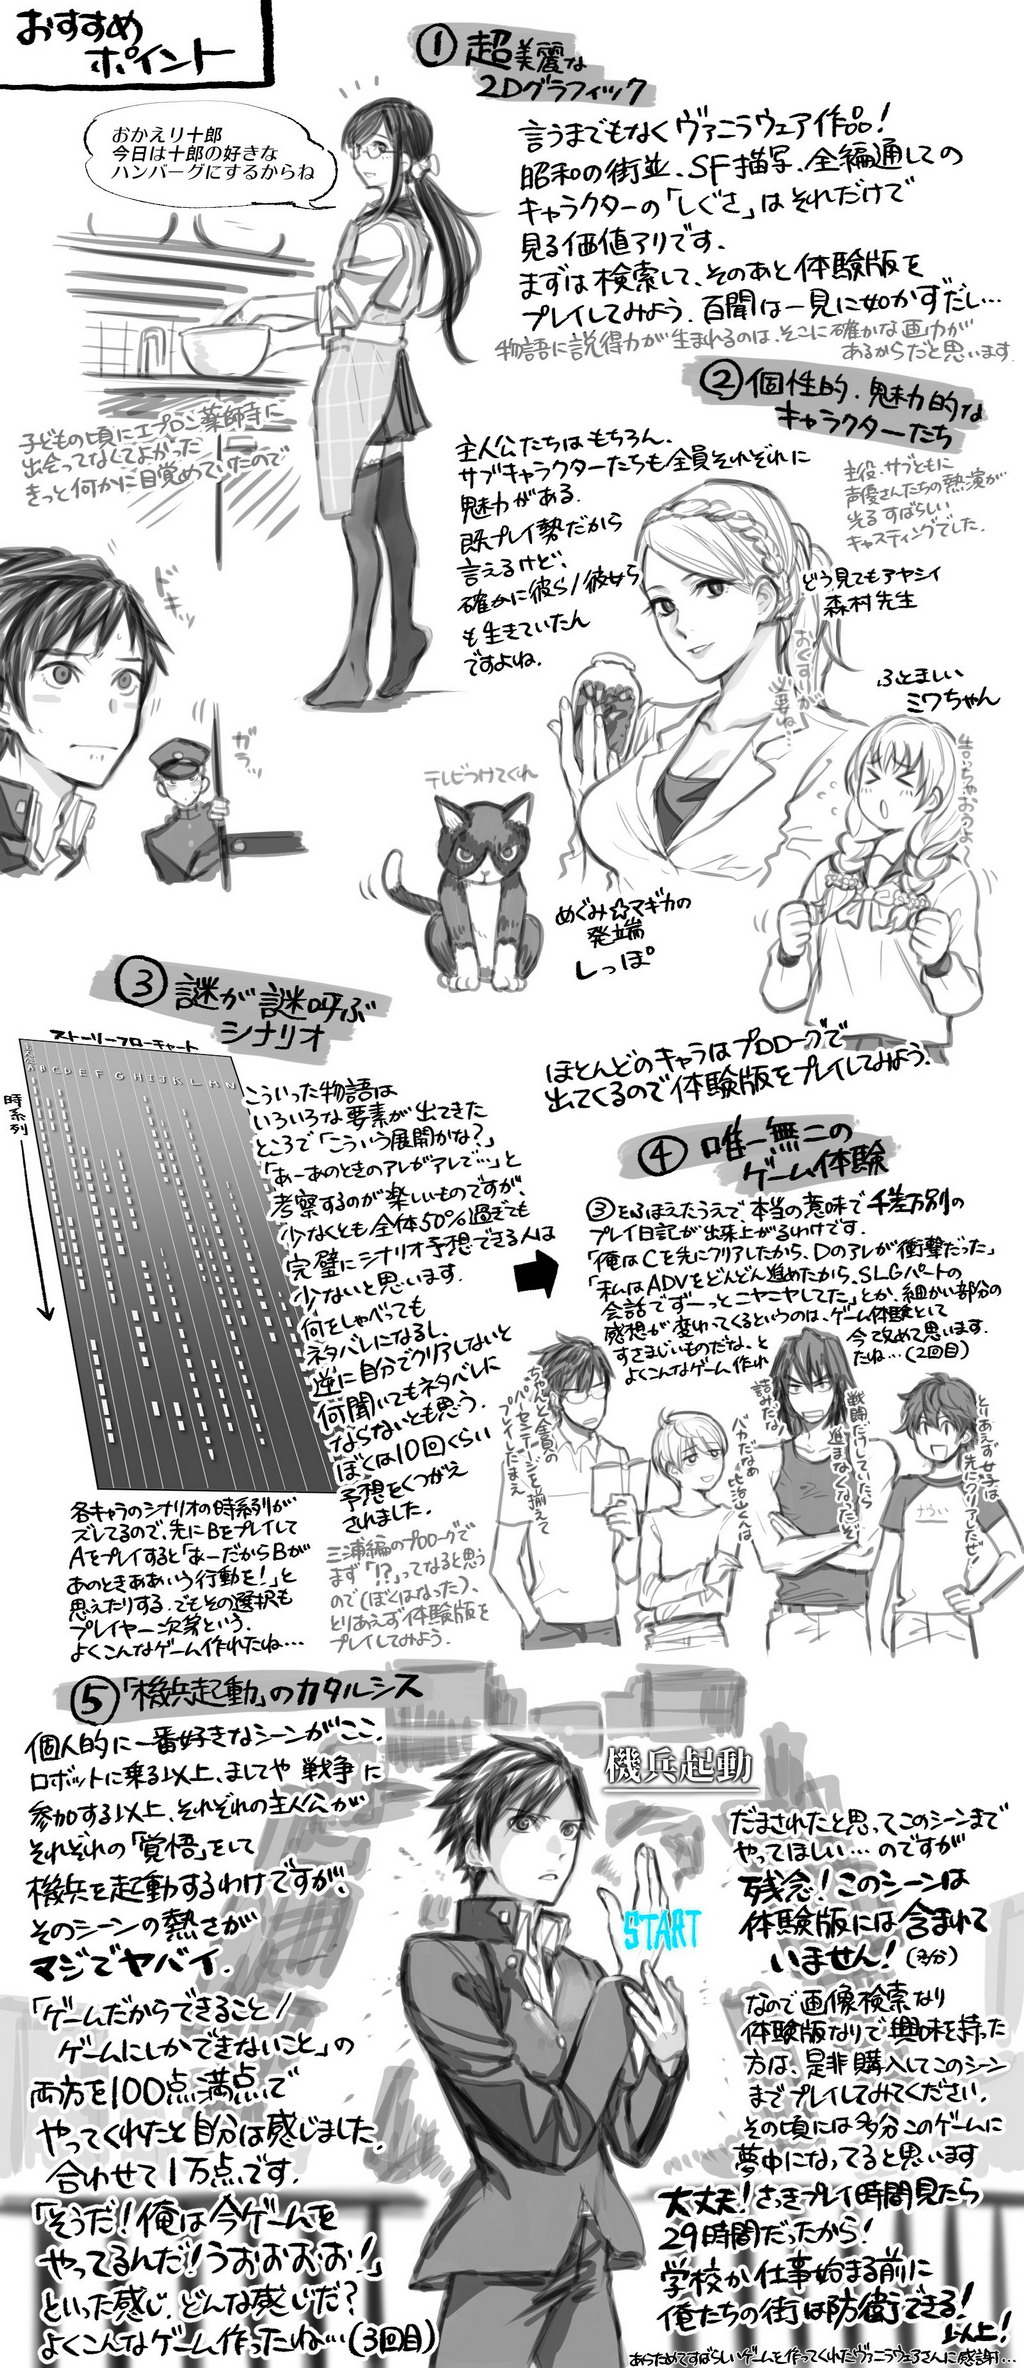 おすすめ
ポイント
①超美麗な
2Dグラフィック
おかえり十郎
今日は十郎の好きな
ハンバーグにするからね
言うまでもなくヴァニラウェア作品!
昭和の街並、SF描写、全編通しての
キャラクターの「しぐさ」はそれだけで
見る価値アリです.
まずは検索して、そのあと体験版を
プレイしてみよう.百聞は一見に如かずだし…
物語に説得力が生まれるのは、そこに確かな画力が
あるからだと思います.
子どもの頃にエプロン薬師寺に
出会ってなくてよかった
きっと何かに目覚めていたので
ドキッ
ガラッ
②個性的、魅力的な
キャラクターたち
主人公たちはもちろん、
サブキャラクターたちも全員それぞれに
魅力がある.
既プレイ勢だから
言えるけど、
確かに彼ら/彼女ら
も生きていたん
ですよね.
主役、サブともに
声優さんたちの熱演が
光るすばらしい
キャスティングでした.
どう見てもアヤシイ
森村先生
おくすりが
必要ね…
ふとましい
ミワちゃん
言っちゃおうよ〜
テレビつけてくれ
めぐみ☆マギカの
発端
しっぽ
ほとんどのキャラはプロローグで
出てくるので体験版をプレイしてみよう.
③謎が謎呼ぶ
シナリオ
ストーリーフローチャート
A B C D E F G H I J K L M N
時系列
こういった物語は
いろいろな要素が出てきた
ところで「こういう展開かな?」
「あーあのときのアレがアレで…」と
考察するのが楽しいものですが、
少なくとも全体50%過ぎても
完璧にシナリオ予想できる人は
少ないと思います.
何をしゃべっても
ネタバレになるし、
逆に自分でクリアしないと
何聞いてもネタバレに
ならないとも思う.
ぼくは10回くらい
予想をくつがえ
されました.
各キャラのシナリオの時系列が
ズレてるので、先にBをプレイして
Aをプレイすると「あーだからBが
あのときああいう行動を!」と
思えたりする.でもその選択も
プレイヤー次第という.
よくこんなゲーム作れたね…
三浦編のプロローグで
まず「!?」ってなると思う
ので(ぼくはなった)、
とりあえず体験版を
プレイしてみよう.
④唯一無二の
ゲーム体験
③をふまえたうえで本当の意味で千差万別の
プレイ日記が出来上がるわけです.
「俺はCを先にクリアしたから、Dのアレが衝撃だった」
「私はADVをどんどん進めたから、SLGパートの
会話でずーっとニヤニヤしてた」とか、細かい部分の
感想が変わってくるというのは、ゲーム体験として
すさまじいものだな、と今改めて思います.
よくこんなゲーム作れたね…(2回目)
ちゃんと全員の
パーセンテージを揃えて
プレイしたまえ
バカだなぁ
比治山くんは
戦闘だけしていたら
進まなくなったぞ
詰みだな
とりあえず女子は
先にクリアしたぜ!
⑤「機兵起動」のカタルシス
個人的に一番好きなシーンがここ.
ロボットに乗る以上、ましてや戦争に
参加する以上、それぞれの主人公が
それぞれの「覚悟」をして
機兵を起動するわけですが、
そのシーンの熱さが
マジでヤバイ.
「ゲームだからできること/
ゲームにしかできないこと」の
両方を100点満点で
やってくれたと自分は感じました.
合わせて1万点です.
「そうだ!俺は今ゲームを
やってるんだ!うおおおお!」
といった感じ.どんな感じだ?
よくこんなゲーム作ったね…(3回目)
機兵起動
START
だまされたと思ってこのシーンまで
やってほしい…のですが
残念!このシーンは
体験版には含まれて
いません!(多分)
なので画像検索なり
体験版なりで興味を持った
方は、是非購入してこのシーン
までプレイしてみてください.
その頃には多分このゲームに
夢中になってると思います
大丈夫!さっきプレイ時間見たら
29時間だったから!
学校か仕事始まる前に
俺たちの街は防衛できる!
以上!
あらためてすばらしいゲームを作ってくれたヴァニラウェアさんに感謝…